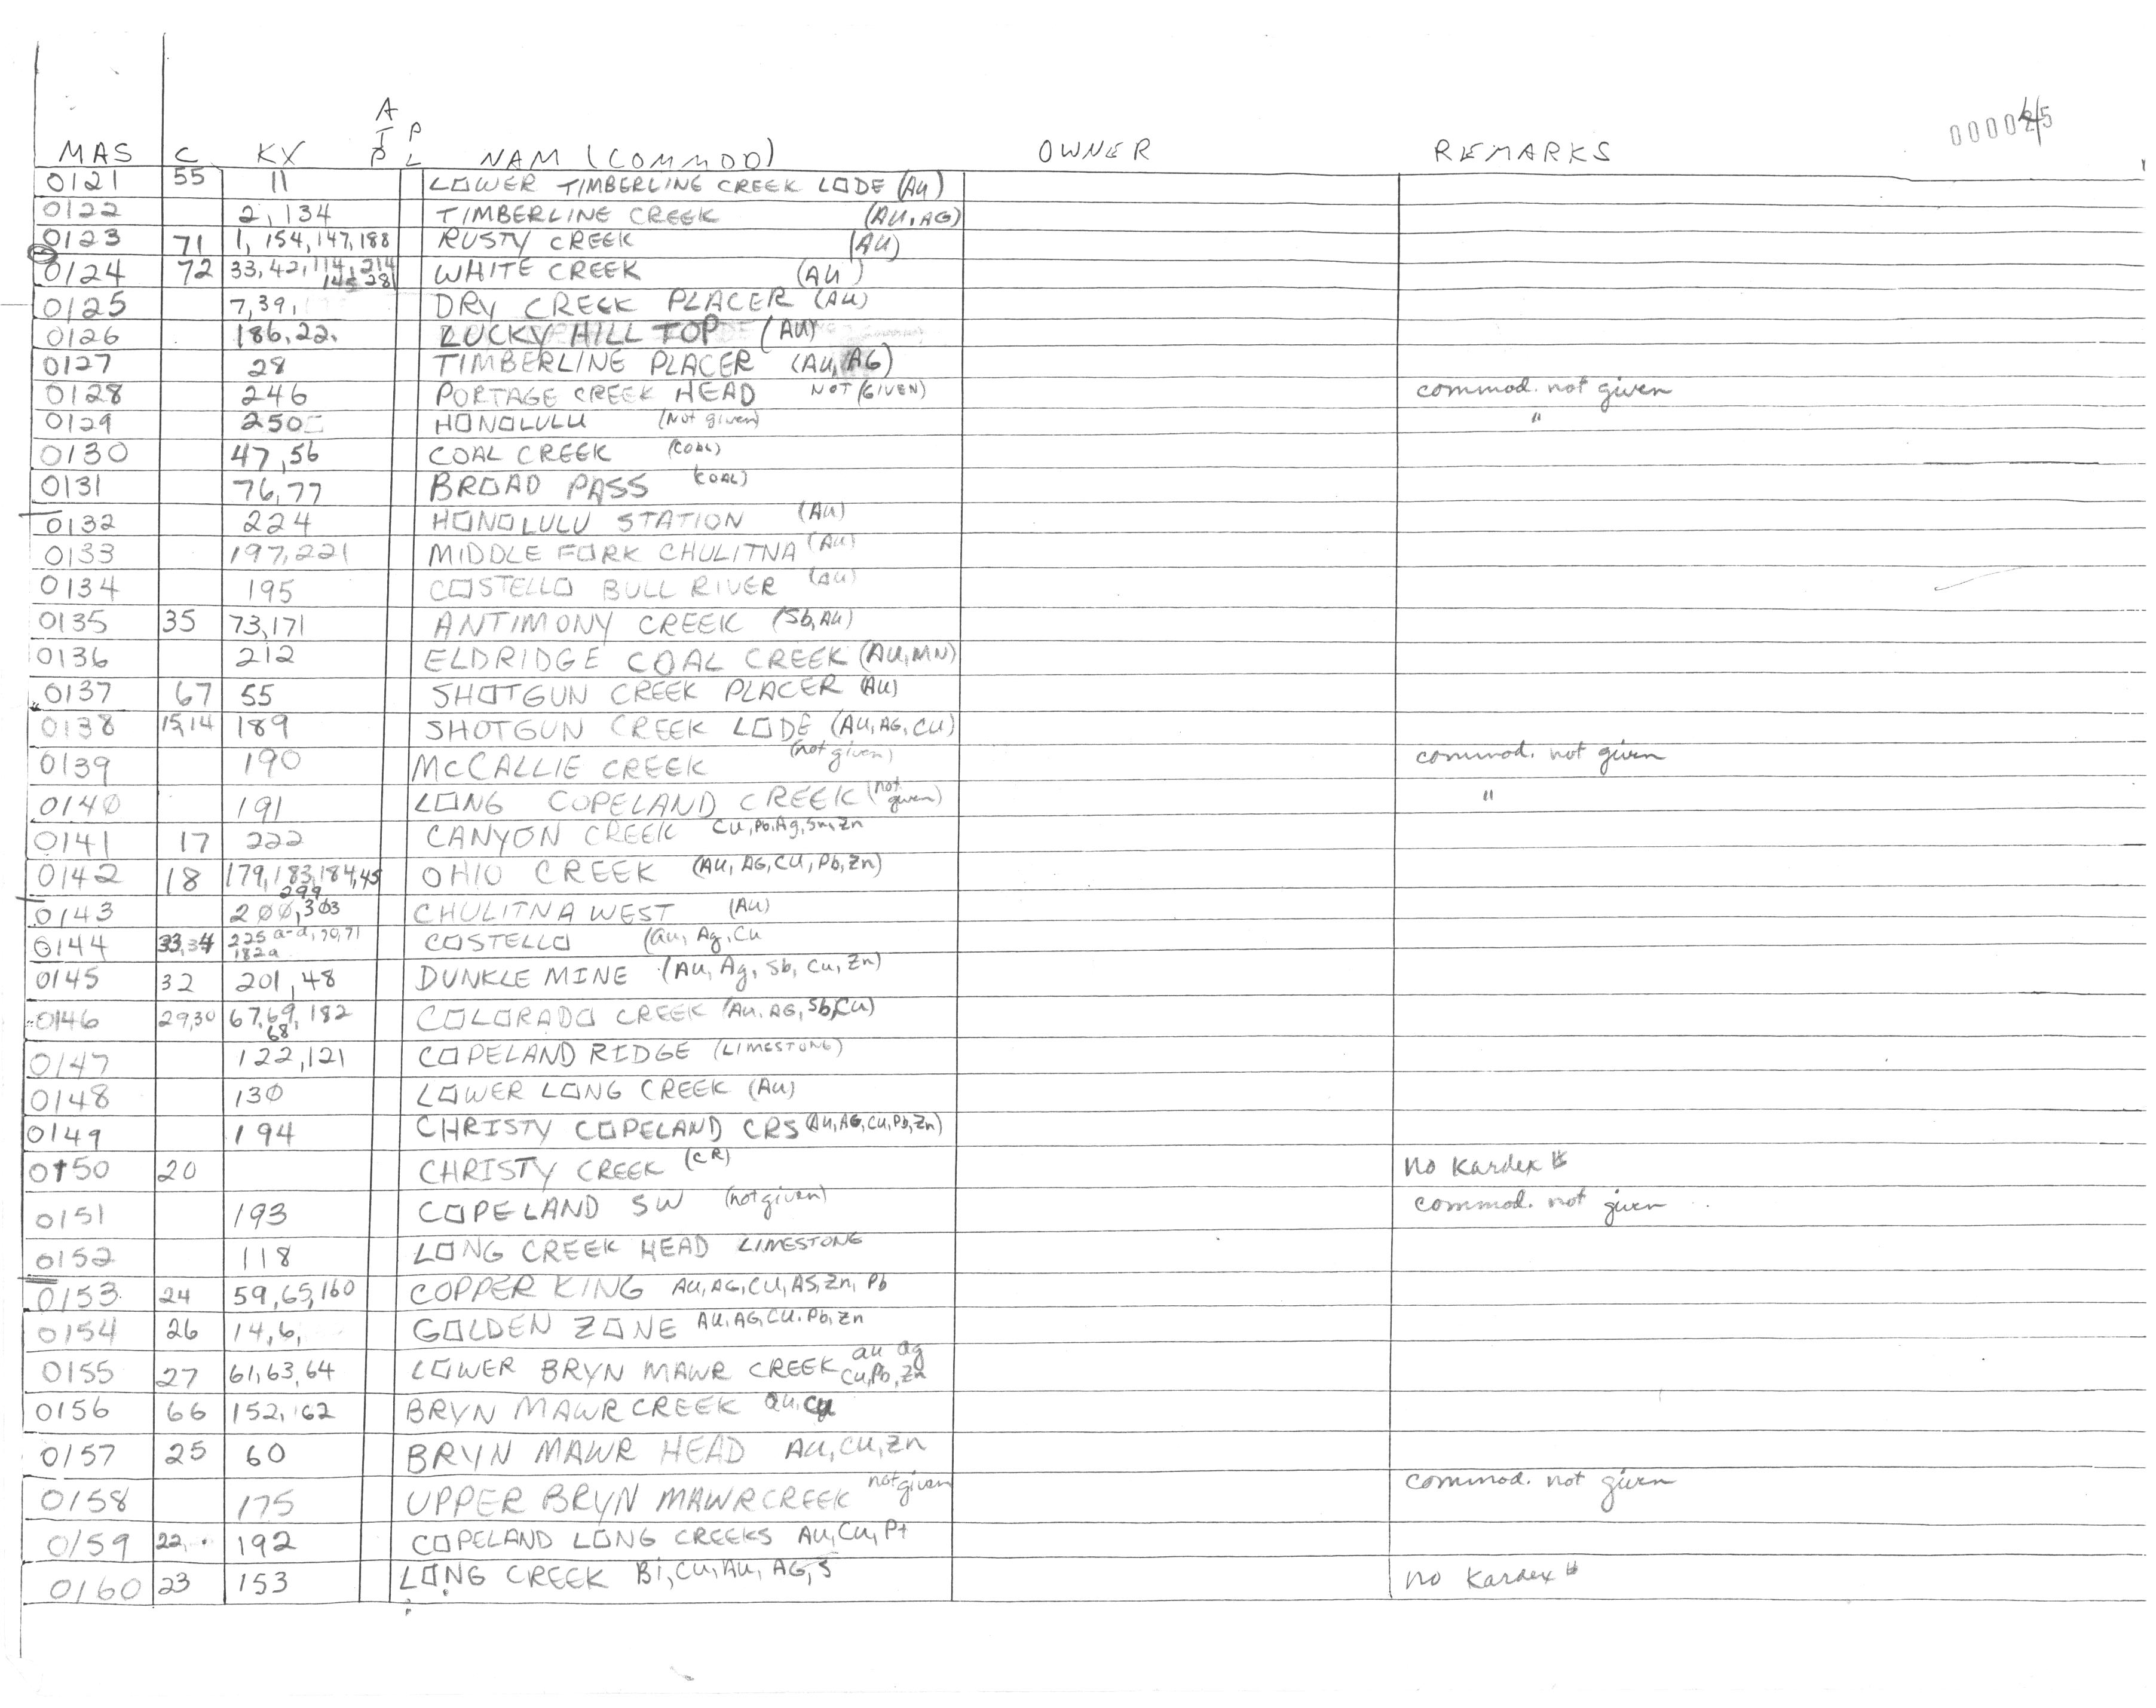 000045
MAS C KX ATP PL NAM (COMMOD) OWNER REMARKS
0121 55 11 LOWER TIMBERLINE CREEK LODE (Au)
0122 2, 134 TIMBERLINE CREEK (AU, AG)
0123 71 1, 154, 147, 188 RUSTY CREEK (AU)
0124 72 33, 42, 114, 214 WHITE CREEK (AU)
145 281
0125 7, 39, DRY CREEK PLACER (AU)
0126 186, 22. LUCKY HILL TOP (AU)
0127 28 TIMBERLINE PLACER (AU, AG)
0128 246 PORTAGE CREEK HEAD NOT (GIVEN) commod. not given
0129 250 HONOLULU (Not given) "
0130 47, 56 COAL CREEK (COAL)
0131 76, 77 BROAD PASS (COAL)
0132 224 HONOLULU STATION (AU)
0133 197, 221 MIDDLE FORK CHULITNA (AU)
0134 195 COSTELLO BULL RIVER (au)
0135 35 73, 171 ANTIMONY CREEK (Sb, AU)
0136 212 ELDRIDGE COAL CREEK (AU, MN)
0137 67 55 SHOTGUN CREEK PLACER (AU)
0138 15, 14 189 SHOTGUN CREEK LODE (AU, AG, CU)
0139 190 McCALLIE CREEK (not given) commod. not given
0140 191 LONG COPELAND CREEK (not given) "
0141 17 222 CANYON CREEK Cu, Pb, Ag, Sn, Zn
0142 18 179, 183, 184, 45 OHIO CREEK (AU, AG, CU, Pb, Zn)
299
0143 200, 303 CHULITNA WEST (AU)
0144 33, 34 225 a-d, 70, 71 COSTELLO (au, Ag, Cu
182a
0145 32 201, 48 DUNKLE MINE (Au, Ag, Sb, Cu, Zn)
0146 29, 30 67, 69, 182 COLORADO CREEK (Au, AG, Sb, Cu)
68
0147 122, 121 COPELAND RIDGE (LIMESTONE)
0148 130 LOWER LONG CREEK (Au)
0149 194 CHRISTY COPELAND CRS (AU, AG, CU, Pb, Zn)
0150 20 CHRISTY CREEK (CR) no Kardex #
0151 193 COPELAND SW (not given) commod. not given
0152 118 LONG CREEK HEAD LIMESTONE
0153 24 59, 65, 160 COPPER KING AU, AG, CU, AS, Zn, Pb
0154 26 14, 6, GOLDEN ZONE AU, AG, CU. Pb, Zn
0155 27 61, 63, 64 LOWER BRYN MAWR CREEK au ag
Cu, Pb, Zn
0156 66 152, 162 BRYN MAWR CREEK au, Cu
0157 25 60 BRYN MAWR HEAD AU, CU, Zn
0158 175 UPPER BRYN MAWR CREEK not given commod. not given
0159 22, 192 COPELAND LONG CREEKS AU, CU, Pt
0160 23 153 LONG CREEK Bi, Cu, Au, AG, S no Kardex #